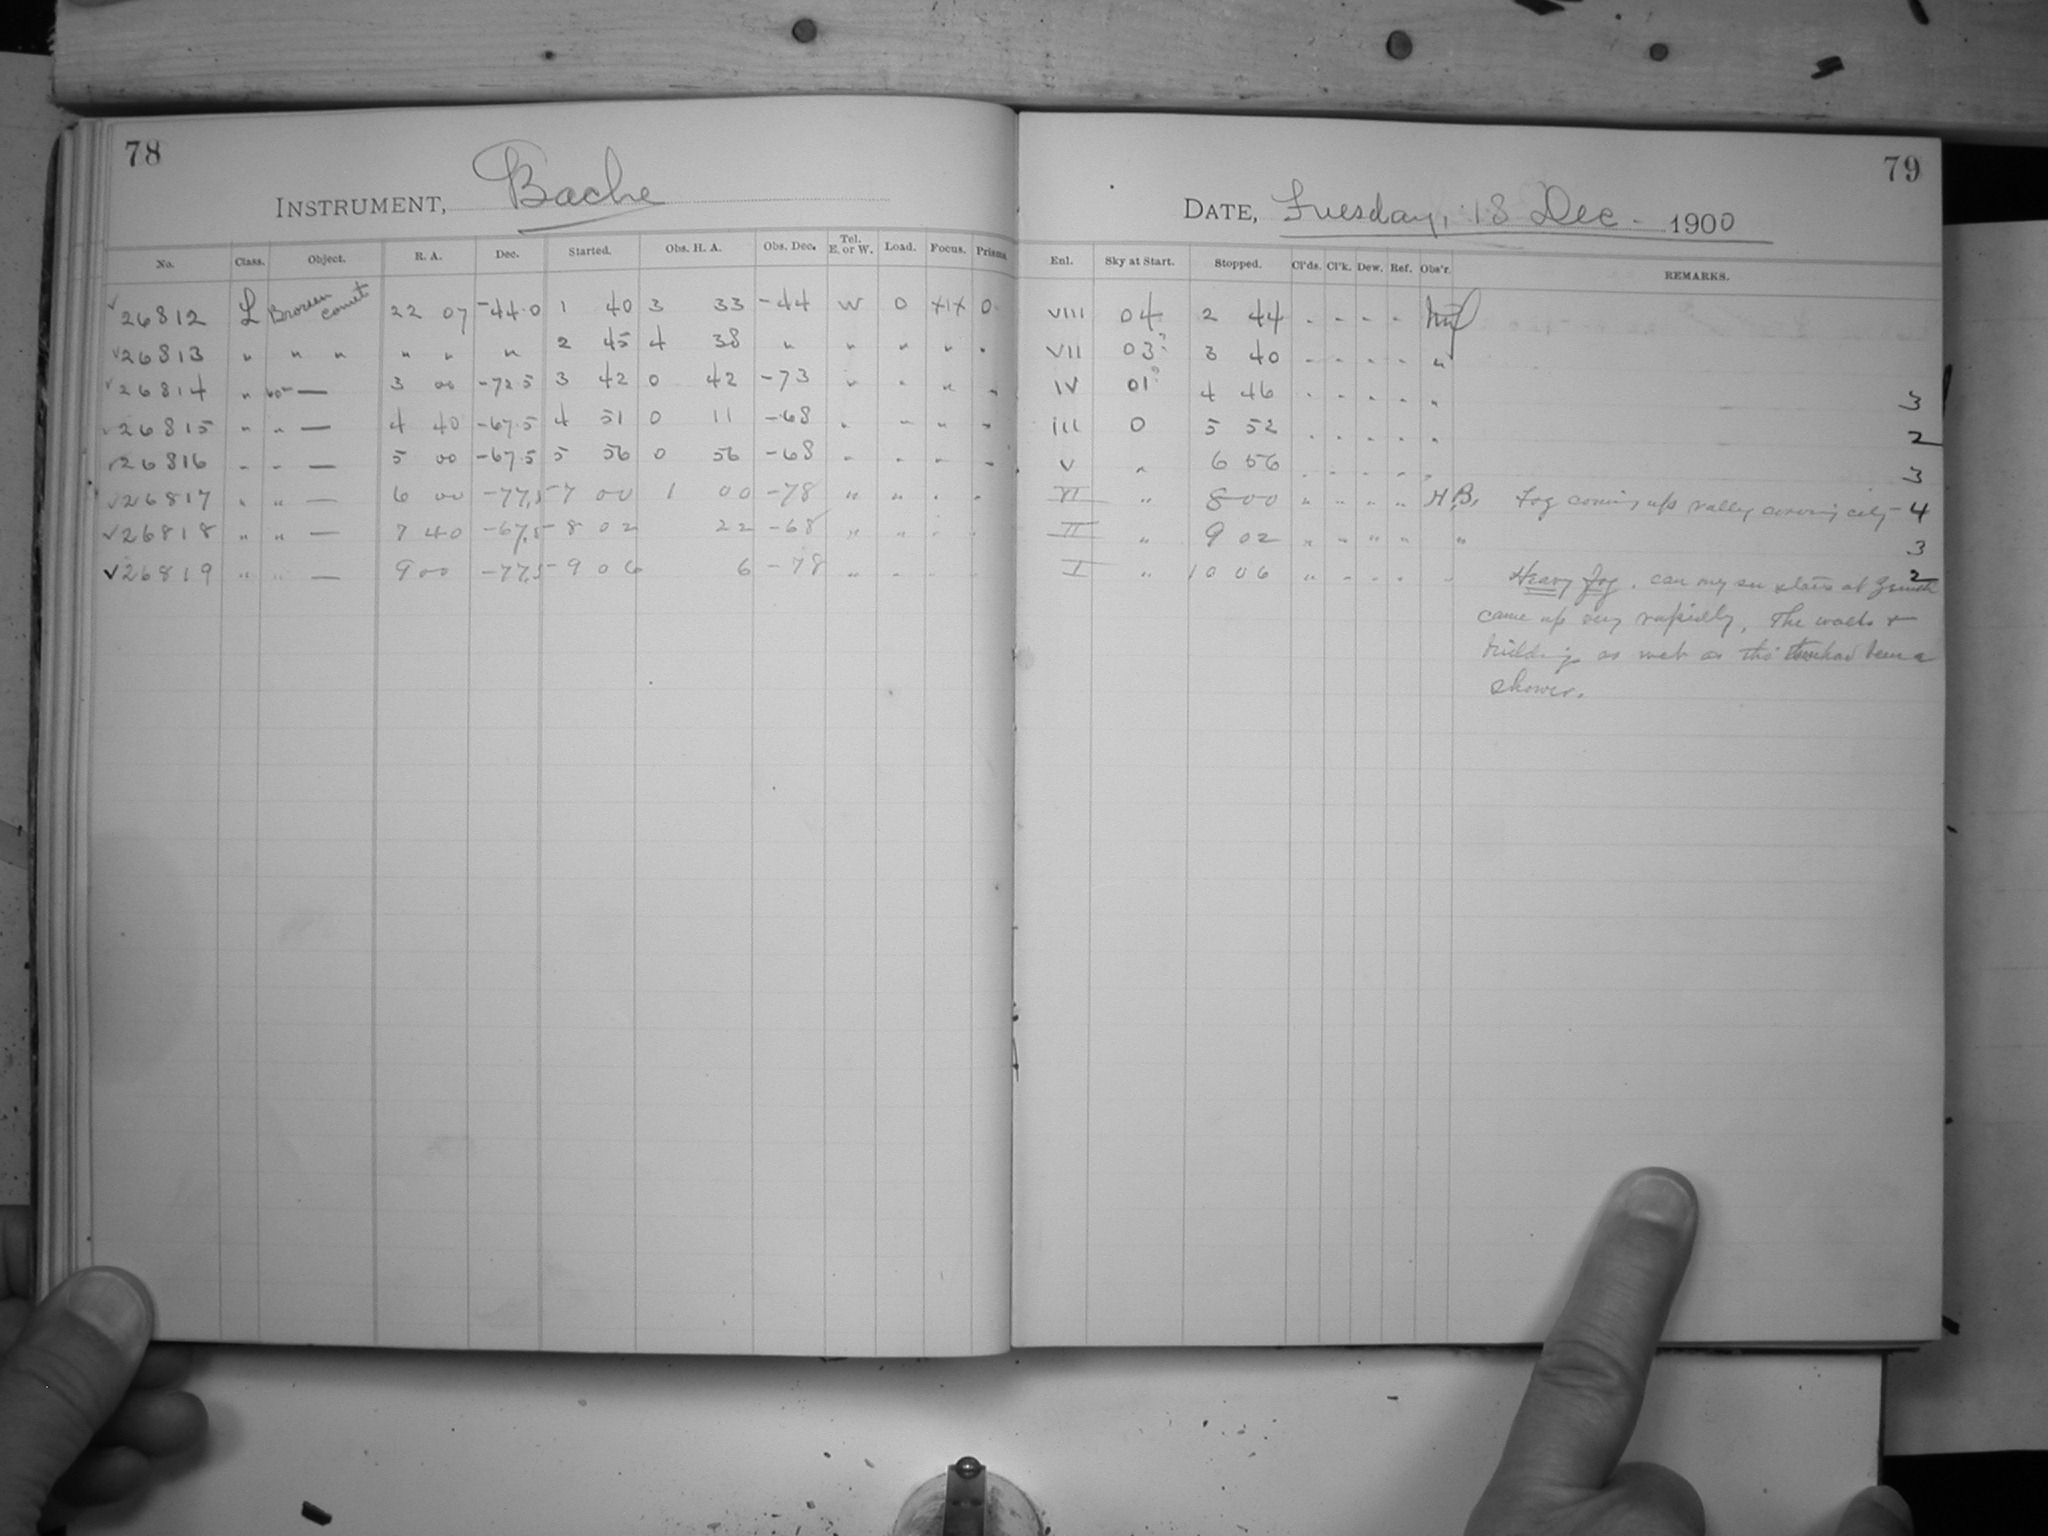 78
INSTRUMENT, Bache
No. Class. Object. R. A. Dec. Started. Obs. H. A. Obs. Dec. Tel. E. or W. Load. Focus. Prisms
✓26812 L Brorsen comet 22 07 -44.0 1 40 3 33 -44 W 0 +1+ 0
✓26813 " " " " " " 2 45 4 38 " " " " "
✓26814 " — 3 00 -72.5 3 42 0 42 -73 " " " "
✓26815 " " — 4 40 -67.5 4 51 0 11 -68 " " " "
✓26816 " " — 5 00 -67.5 5 56 0 56 -68 " " " "
✓26817 " " — 6 00 -77.5 7 00 1 00 -78 " " " "
✓26818 " " — 7 40 -67.5 8 02 22 -68 " " " "
✓26819 " " — 9 00 -77.5 9 06 6 -78 " " " "
79
DATE, Tuesday, 18 Dec. 1900
Enl. Sky at Start. Stopped. Cl'ds. Cl'k. Dew. Ref. Obs'r. REMARKS.
VIII 04 2 44 - - - -
VII 03? 3 40 - - - - "
IV 01? 4 46 - - - - " 3
III 0 5 52 - - - - " 2
V " 6 56 - - - - " 3
VI " 8 00 " " " " H.B. Fog coming up valley covering city - 4
II " 9 02 " " " " " 3
I " 10 06 " " " " " 2
Heavy Fog. can only see stars at Zenith
came up very rapidly, The walks +
buildings as wet as tho' there had been a
shower.